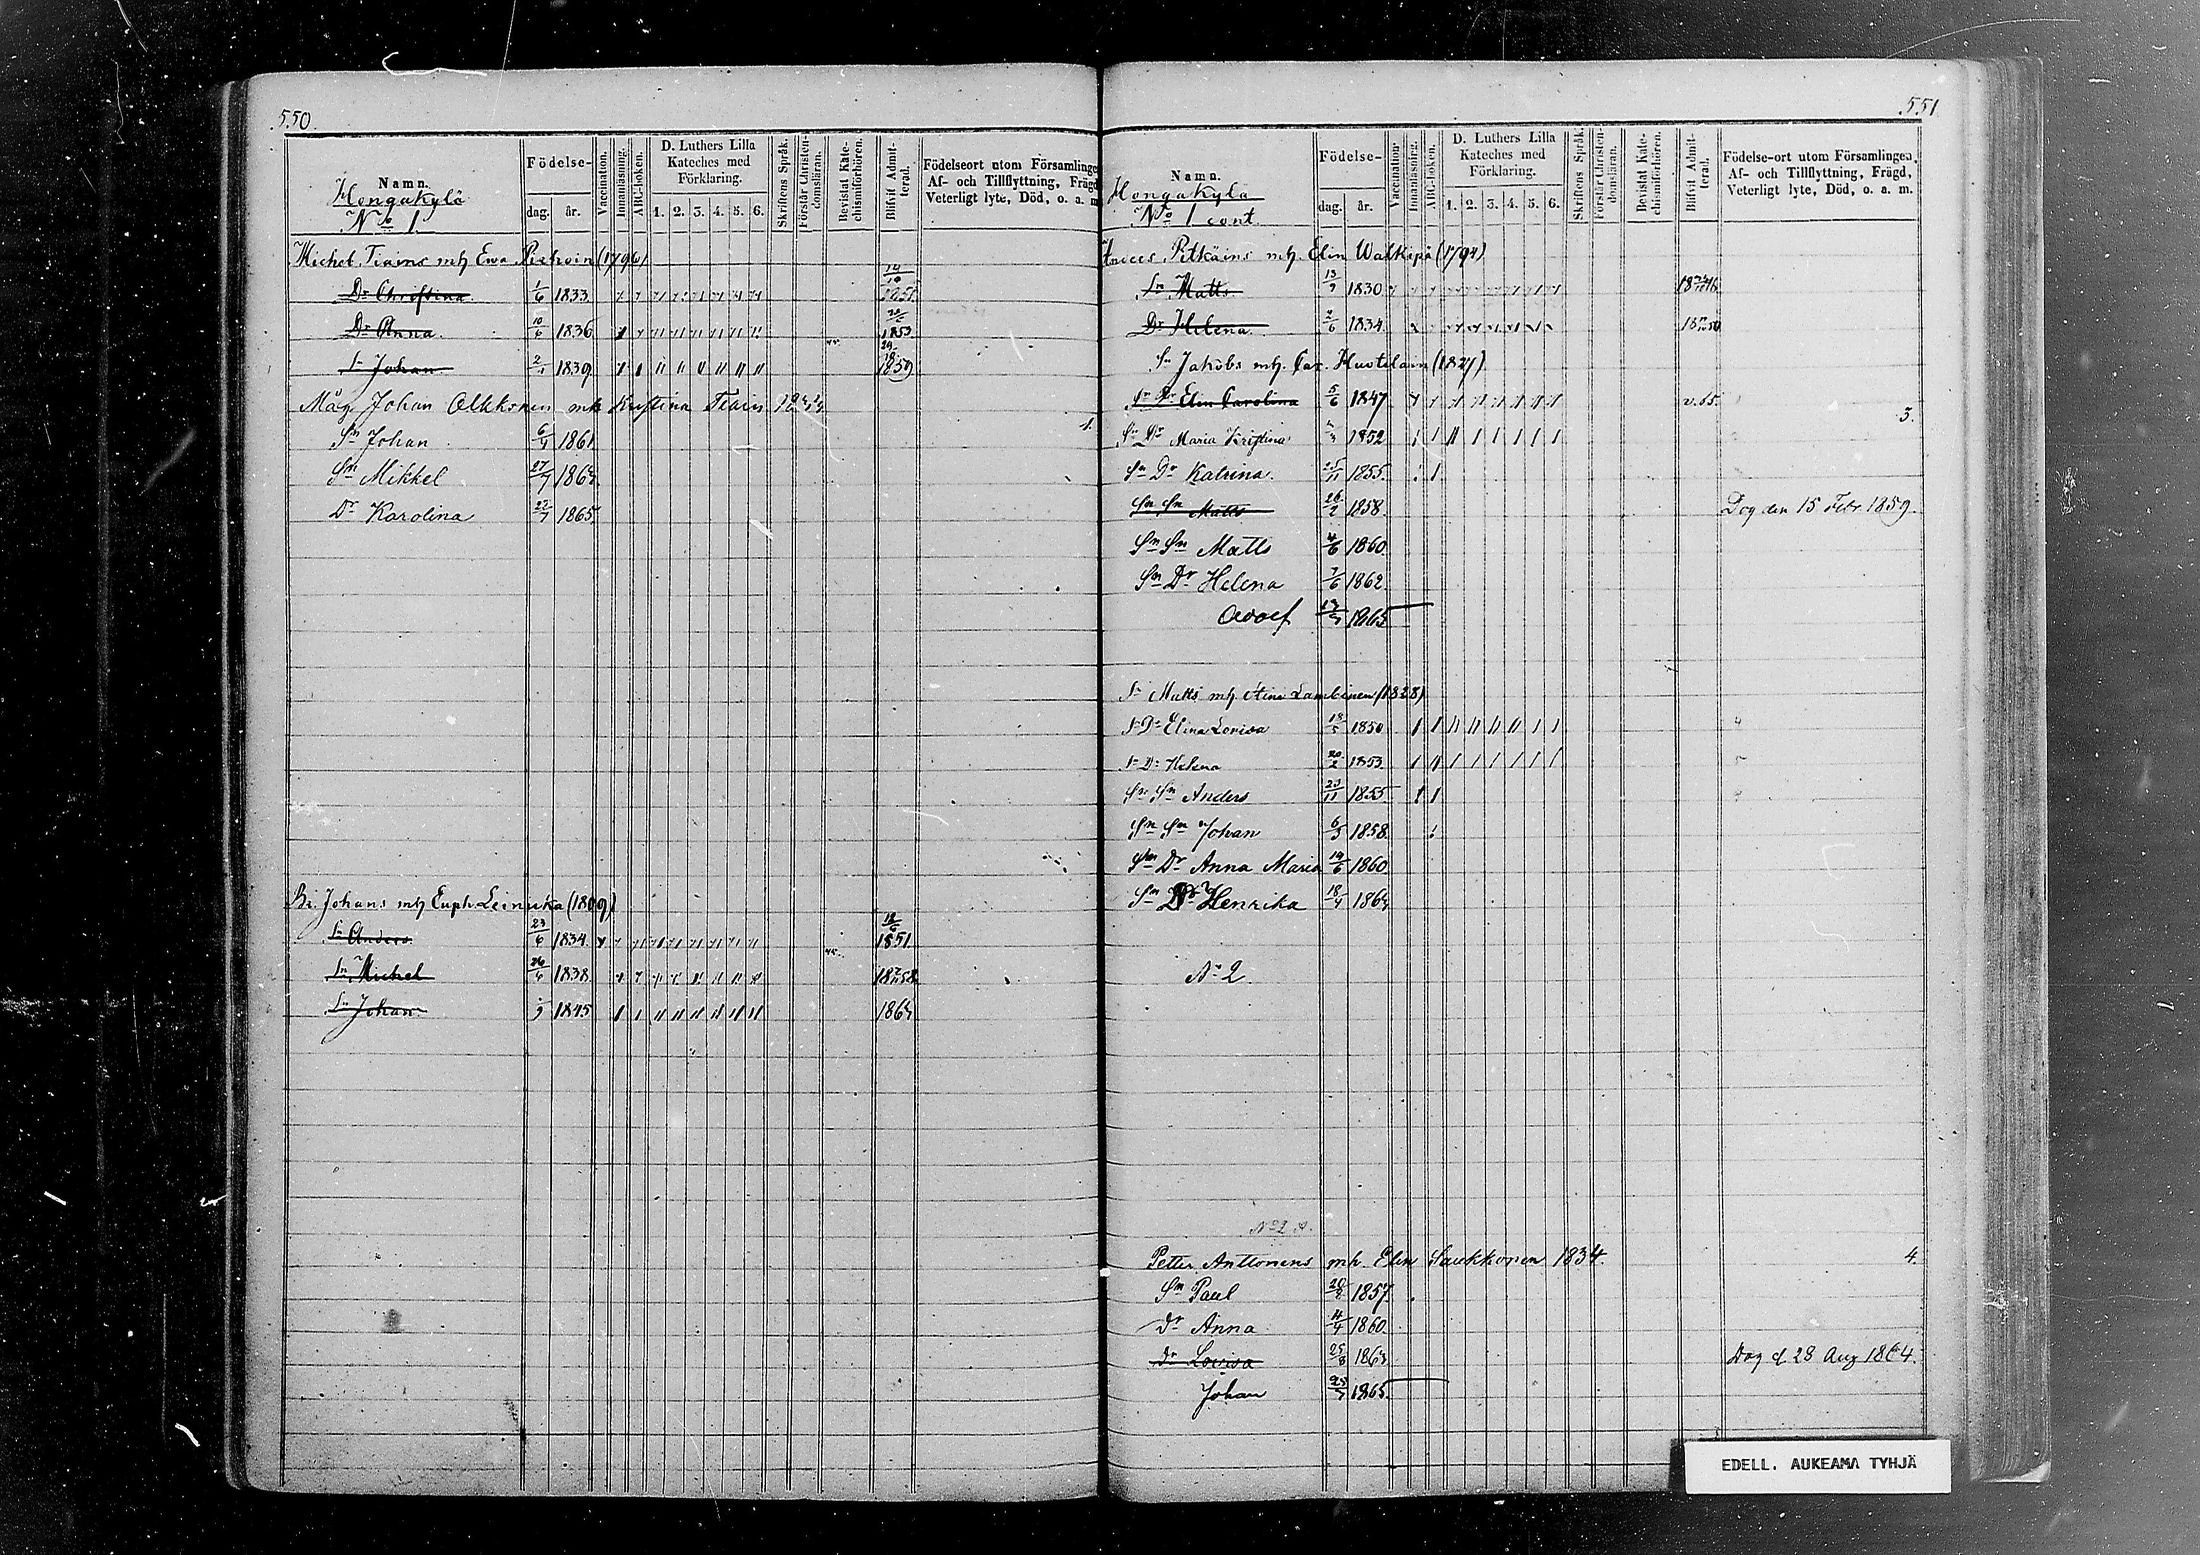 550.
Namn.
Hongakylä
No 1.
Födelse-
dag. år.
Vaccination.
Innanläsning.
ABC-boken.
D. Luthers Lilla
Kateches med
Förklaring.
1. 2. 3. 4. 5. 6.
Skriftens Språk.
Förstår Christen-
domsläran.
Bevistat Kate-
chismiförhören.
Blifvit Admit-
terad.
Födelseort utom Församlingen
Af- och Tillflyttning, Frägd,
Veterligt lyte, Död, o. a. m.
Michel Tiains mh Ewa (1796)
Dr Christina 1/6 1833 1851
Dr Anna 10/6 1836 1853
Sn Johan 1839 1859
Måg Johan Olkkonen mh Kristina Tiain
1.
Sn Johan 1861
Sn Mikkel 27/7 1864
Dr Karolina 22/7 1865
Br. Johans mh Euph. Leinuka (1809)
Sn Anders 23/6 1834 1851
Sn Michel 26/6 1838
Sn Johan 1845 1864
551
Namn.
Hongakylä
No 1 cont.
Födelse-
dag. år.
Vaccination.
Innanläsning.
ABC-boken.
D. Luthers Lilla
Kateches med
Förklaring.
1. 2. 3. 4. 5. 6.
Skriftens Språk.
Förstår Christen-
domsläran.
Bevistat Kate-
chismiförhören.
Blifvit Admit-
terad.
Födelse-ort utom Församlingen,
Af- och Tillflyttning, Frägd,
Veterligt lyte, Död, o. a. m.
Pitkäins mh. Elin Walkipä (1794)
Sn Matts 13/9 1830
Dr Helena 2/6 1834
Sn Jakobs mh. Car. Huostelain (1827)
Sn Dr Elin Carolina 5/6 1847 v. 65.
3.
Sn Dr Maria Kristina 1852
Sn Dr Katrina 25/11 1855
Sn Sn Matts 26/2 1858 Dog den 15 Febr 1859.
Sn Sn Matts 4/6 1860
Sn Dr Helena 7/6 1862
Adolf 1865
Sn Matts mh. Stina Lambinen (1828)
Sn Dr Elina Lovisa 18/5 1850 4
Sn Dr Helena 20/2 1853 5
Sn Sn Anders 23/11 1855
Sn Sn Johan 6/5 1858
Sn Dr Anna Maria 19/6 1860
Sn Dr Henrika 18/4 1864
No 2
No 2 a.
Petter Anttonens mh. Elin Saukkonen 1834.
4.
Sn Paul 1857
Dr Anna 4/4 1860
Dr Lovisa 25/8 1863 Dog d. 28 Aug 1864.
Johan 1865
EDELL. AUKEAMA TYHJÄ